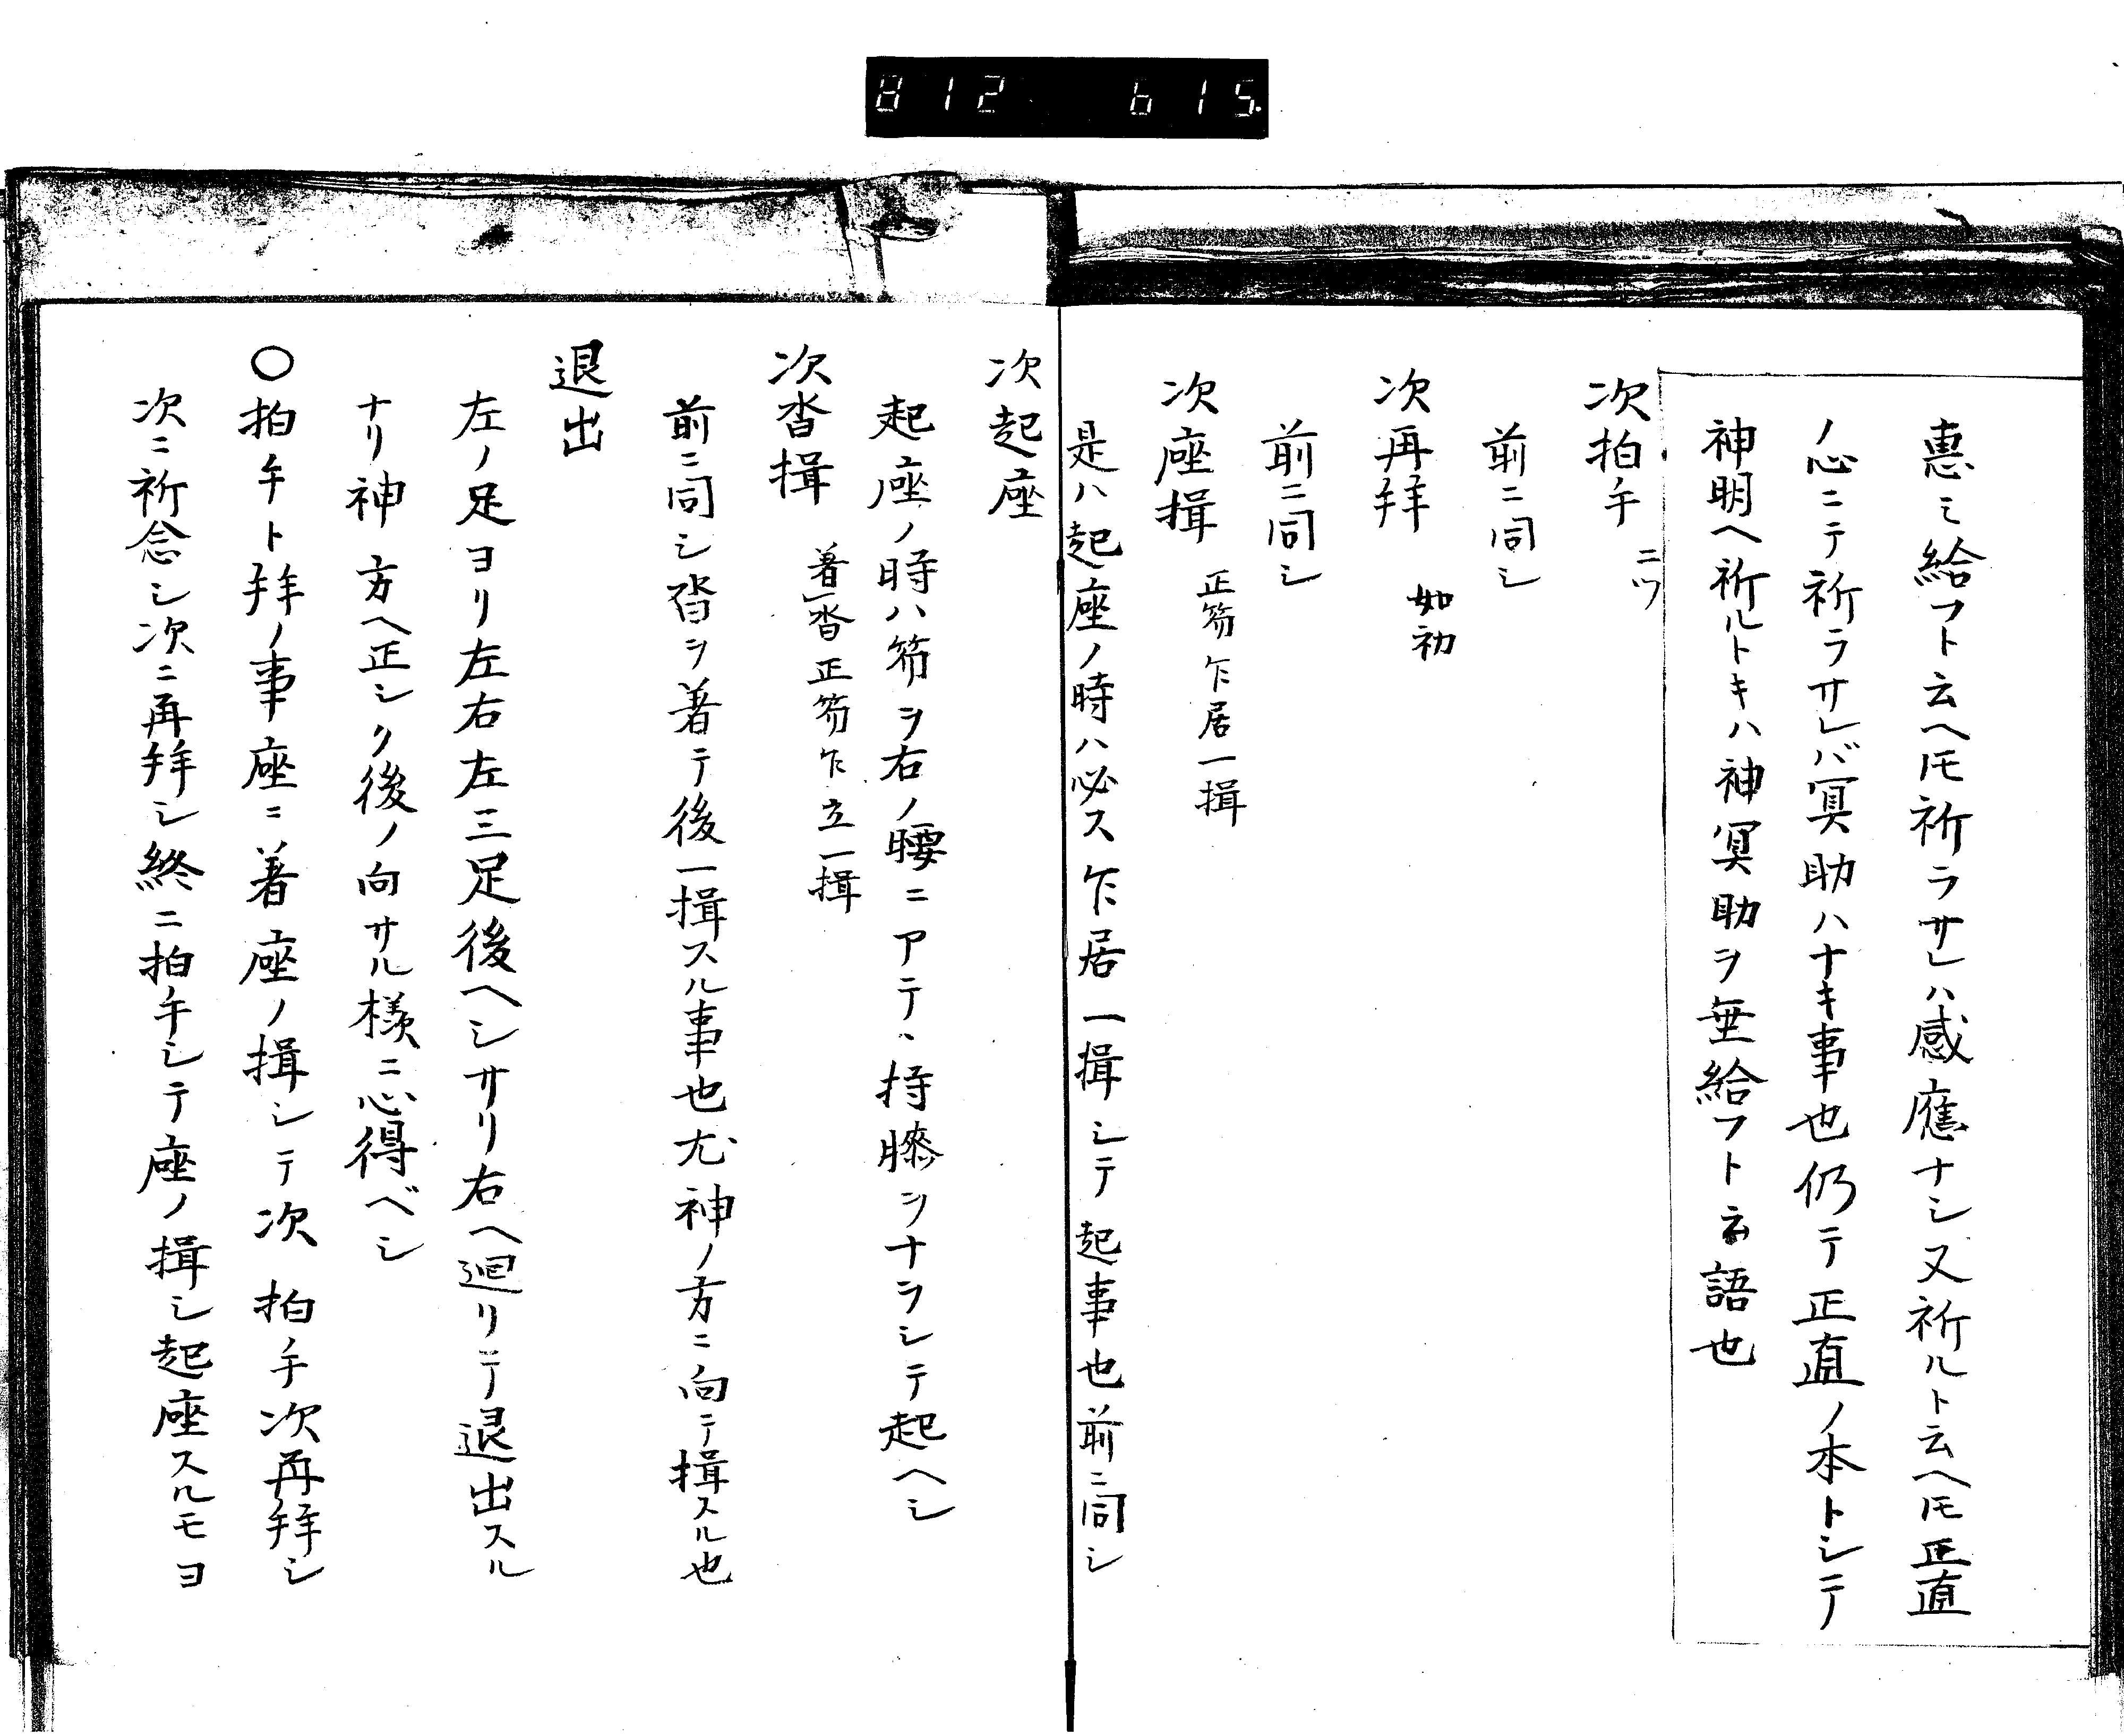 812 615
恵ミ給フト云ヘ𪜈祈ラサレハ感應ナシ又祈ルト云ヘ𪜈正直
ノ心ニテ祈ラサレバ冥助ハナキ事也仍テ正直ノ本トシテ
神明ヘ祈ルトキハ神冥助ヲ垂給フト云語也
次拍手 二ツ
前ニ同シ
次再拜 如初
前ニ同シ
次座揖 正笏乍居一揖
是ハ起座ノ時ハ必ス乍居一揖シテ起事也前ニ同シ
次起座
起座ノ時ハ笏ヲ右ノ腰ニアテヽ持膝ヲナラシテ起ヘシ
次沓揖 著沓正笏乍立一揖
前ニ同シ沓ヲ著テ後一揖スル事也尤神ノ方ニ向テ揖スル也
退出
左ノ足ヨリ左右左三足後ヘシサリ右ヘ廻リテ退出スル
ナリ神方ヘ正シク後ノ向サル様ニ心得ベシ
〇拍手ト拜ノ事座ニ著座ノ揖シテ次拍手次再拜シ
次ニ祈念シ次ニ再拜シ終ニ拍手シテ座ノ揖シ起座スルモヨ